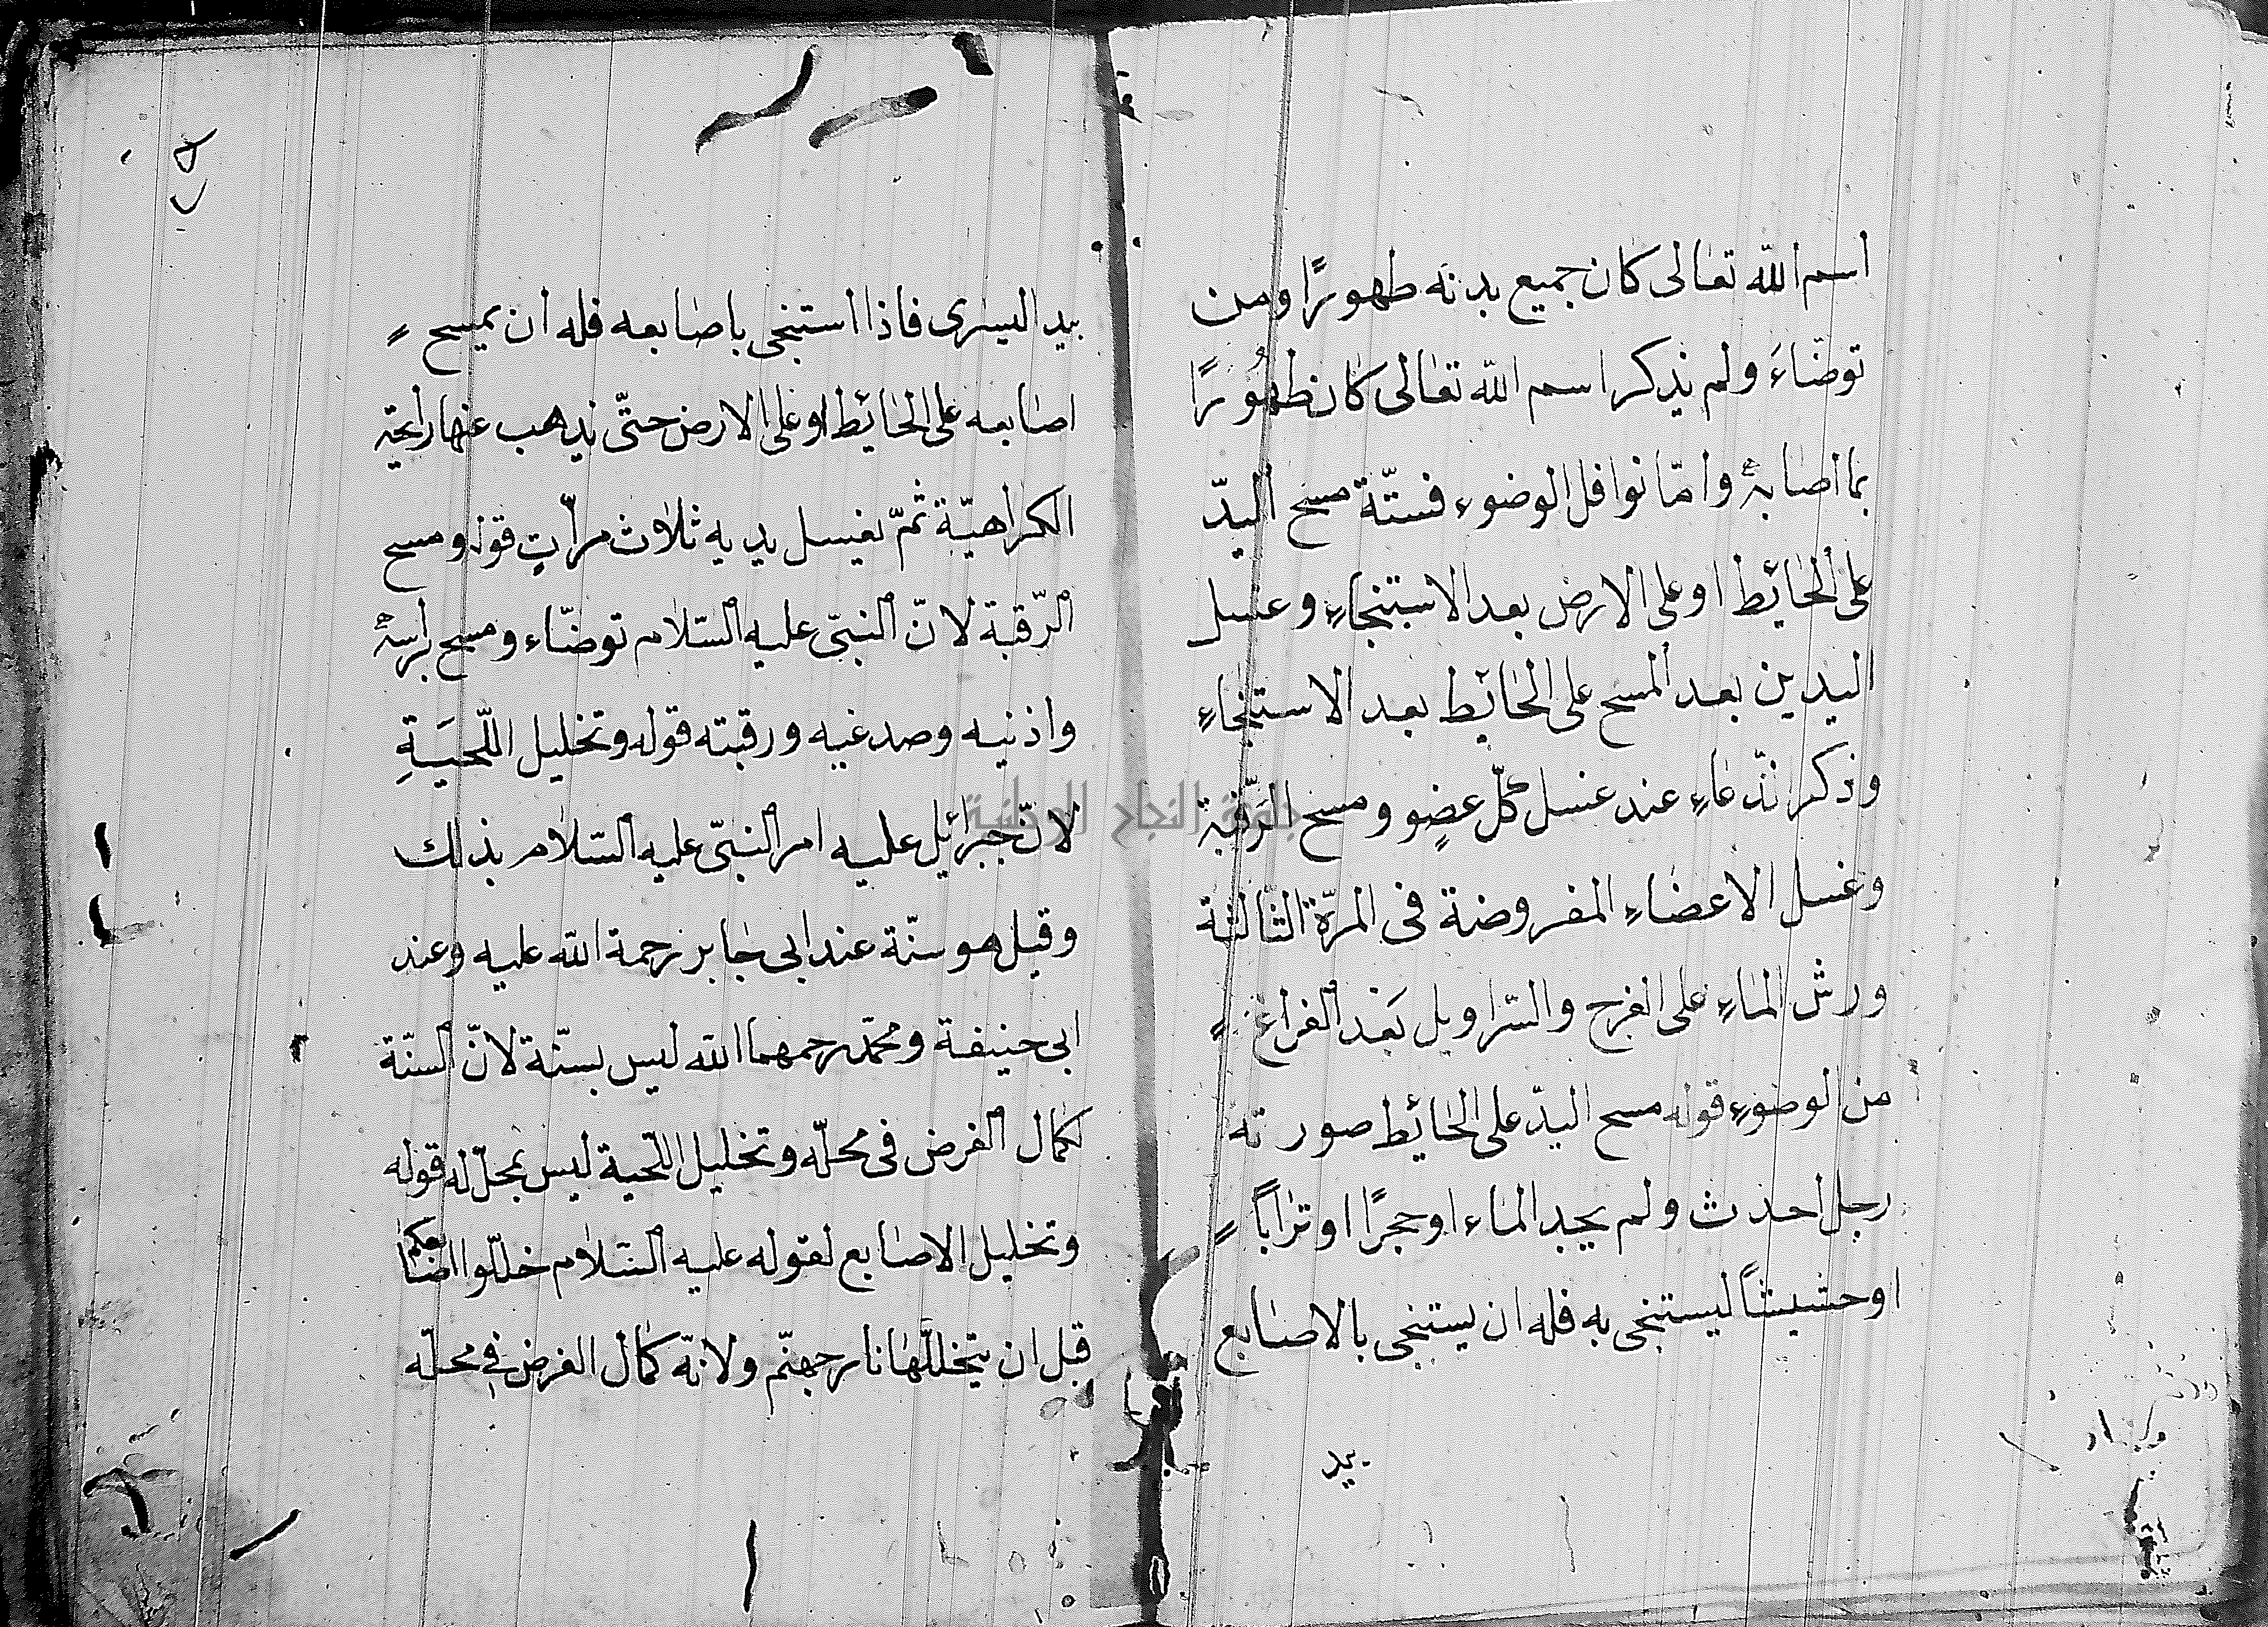 اسم الله تعالى كان جميع بدنه طهورًا ومن
توضّاءَ ولم يذكر اسم الله تعالى كان طهُورًا
بما اصابهُ وامّا نوافل الوضوء فستّة مسح اليدّ
على الحائيط او على الارض بعد الاستنجاءِ وغسل
اليدين بعد المسح على الحائيط بعد الاستنجاءِ
وذكر عند غسل كلّ عضوٍ ومسح الرّقبة
وغسل الاعضاءِ المفروضة فى المرّة الثّالثة
ورش الماءِ على الفرج والسّراويل بَعْد الفراغ
من الوضوءِ قوله مسح اليدّ على الحائيط صورته
رجل احدث ولم يجد الماء او حجرًا او ترابًا
او حشيشًا ليستنجى به فله ان يستنجى بالاصابع
بيد
بيد اليسرى فاذا استنجى باصابعه فله ان يمسح
اصابعه على الحائيط او على الارض حتّى يذهب عنها رايحة
الكراهيّة ثمّ يغسل يديه ثلاث مرّاتٍ قوله ومسح
الرّقبة لانّ النبىّ عليه السّلام توضّاء ومسح براسهُ
واذنيه وصدغيه ورقبته قوله وتخليل اللّحيَةِ
لانّ جبرائيل عليه امر النبىّ عليه السّلام بذلك
وقيل هو سنّة عند ابى جابر رحمة الله عليه وعند
ابى حنيفة ومحمّد رحمهما الله ليس بسنّة لانّ السنّة
كمال الفرض فى محلّه وتخليل اللّحية ليس بمحلّ له قوله
وتخليل الاصابع لقوله عليه السّلام خللّوا اصابعكم
قبل ان يتخللّها نار جهنّم ولانّه كمال الفرض فى محلّه
جامعة النجاح الوطنية